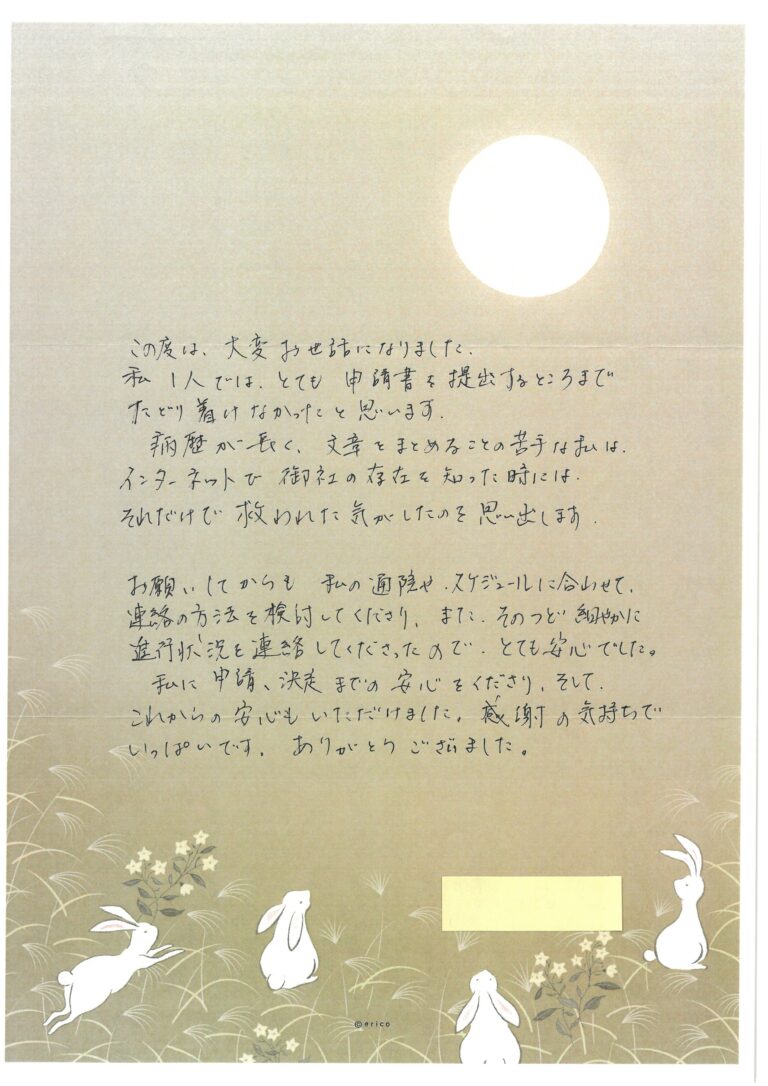 この度は、大変お世話になりました、
私1人では、とても 申請書を提出するところまで
たどり着けなかったと思います。
病歴が長く、文章をまとめることの苦手な私は、
インターネットで 御社の存在を知った時には、
それだけで 救われた気がしたのを 思い出します。
お願いしてからも 私の通院や、スケジュールに合わせて、
連絡の方法を検討してくださり、また、そのつど 細やかに
進行状況を連絡してくださったので、とても安心でした。
私に申請、決定までの安心をくださり、そして、
これからの安心もいただけました。感謝の気持ちで
いっぱいです。ありがとうございました。
©erico